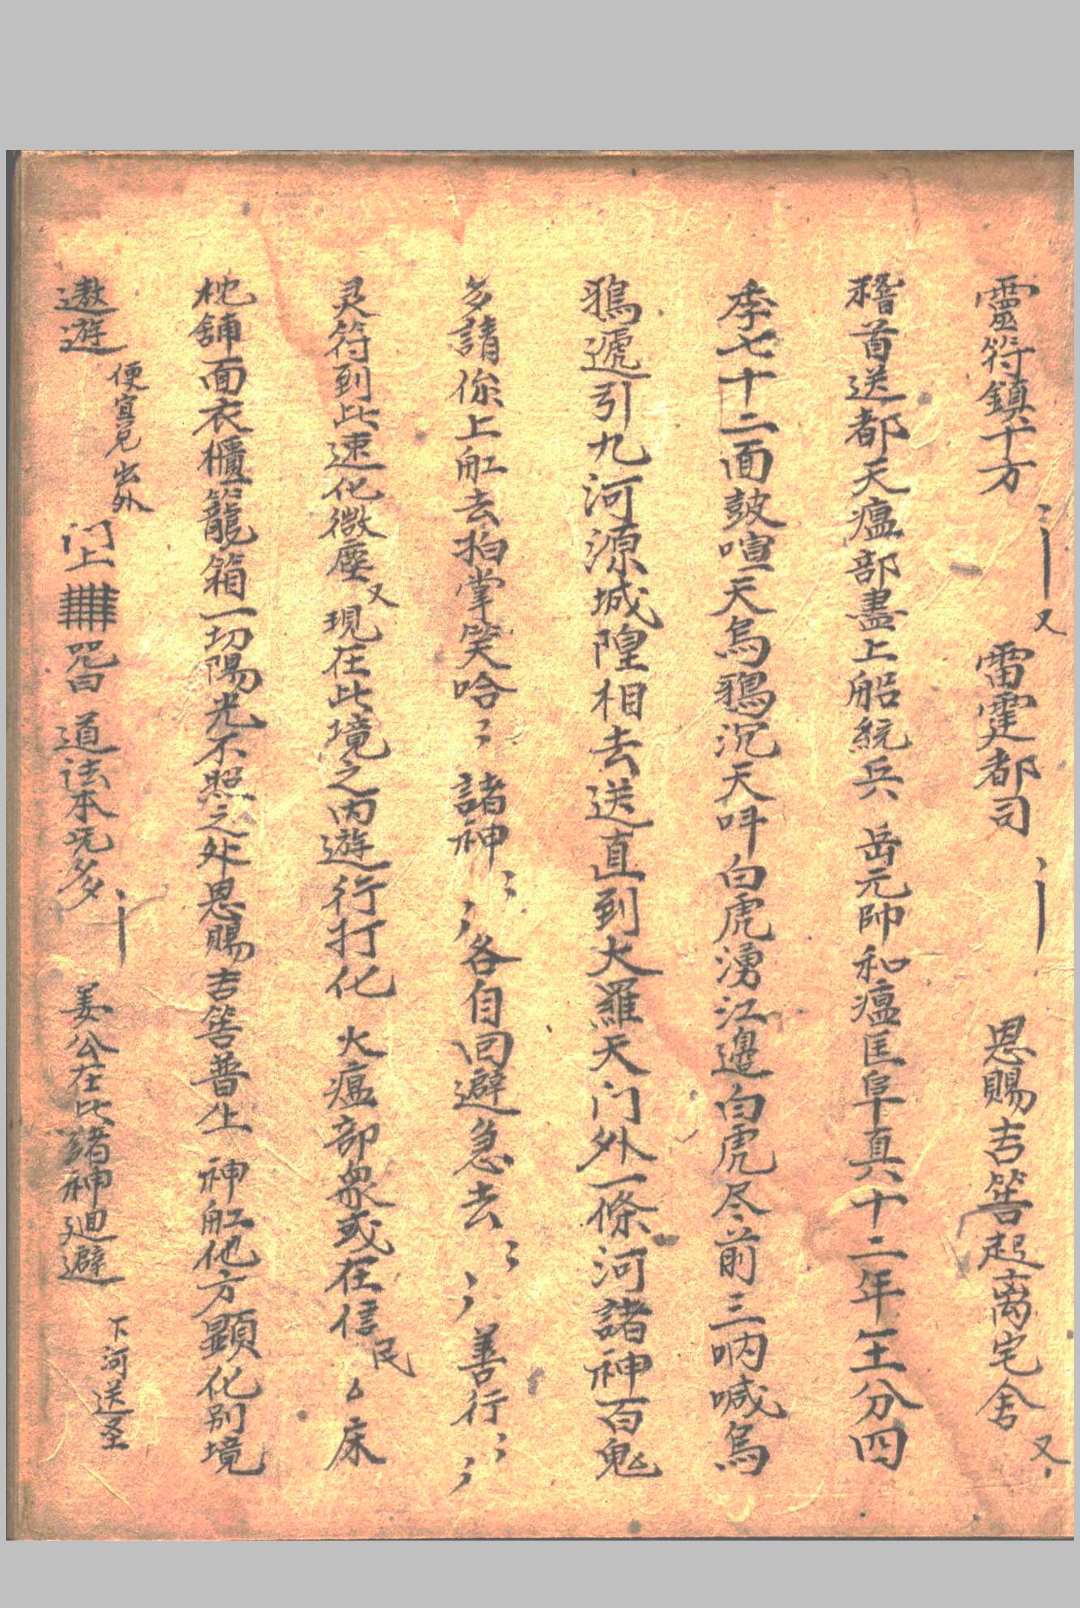 靈符鎮十方 又 雷霆都司 恩賜吉筶起离宅舍 又
稽首送都天瘟部盡上船統兵岳元帥和瘟匡阜真十二年王分四
季七十二面鼓喧天烏鴉沉天叫白虎湧江邊白虎尽前三吶喊烏
鴉遞引九河源城隍相去送直到大羅天门外一條河諸神百鬼
多請你上舡去拍掌笑哈〻諸神〻〻各自回避急去〻〻善行〻〻
灵符到此速化微塵又現在此境之内遊行打化火瘟部衆或在信民厶床
枕舖面衣櫃籠箱一切陽光不照之处恩賜吉筶普上神舡他方顯化别境
遨遊 便宜兄出外 门上 咒曰 道法本旡多 姜公在此諸神廻避 下河送圣